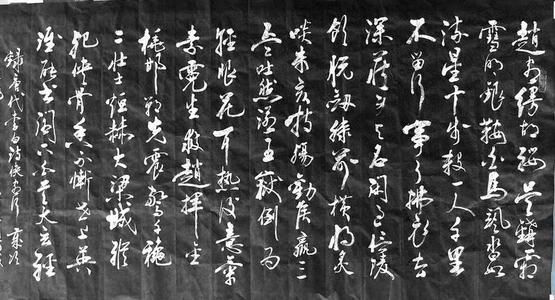 趙客縵胡纓吳鈎霜
雪明銀鞍照白馬颯沓如
流星十步殺一人千里
不留行事了拂衣去
深藏身與名閑過信陵
飲脫劍膝前橫將炙
啖朱亥持觴勸侯嬴三
杯吐然諾五嶽倒為
輕眼花耳熱後意氣
素霓生救趙揮金
槌邯鄲先震驚千秋
二壯士烜赫大梁城縱
死俠骨香不慚世上英
誰能書閣下白首太玄經
錄唐代李白詩俠客行